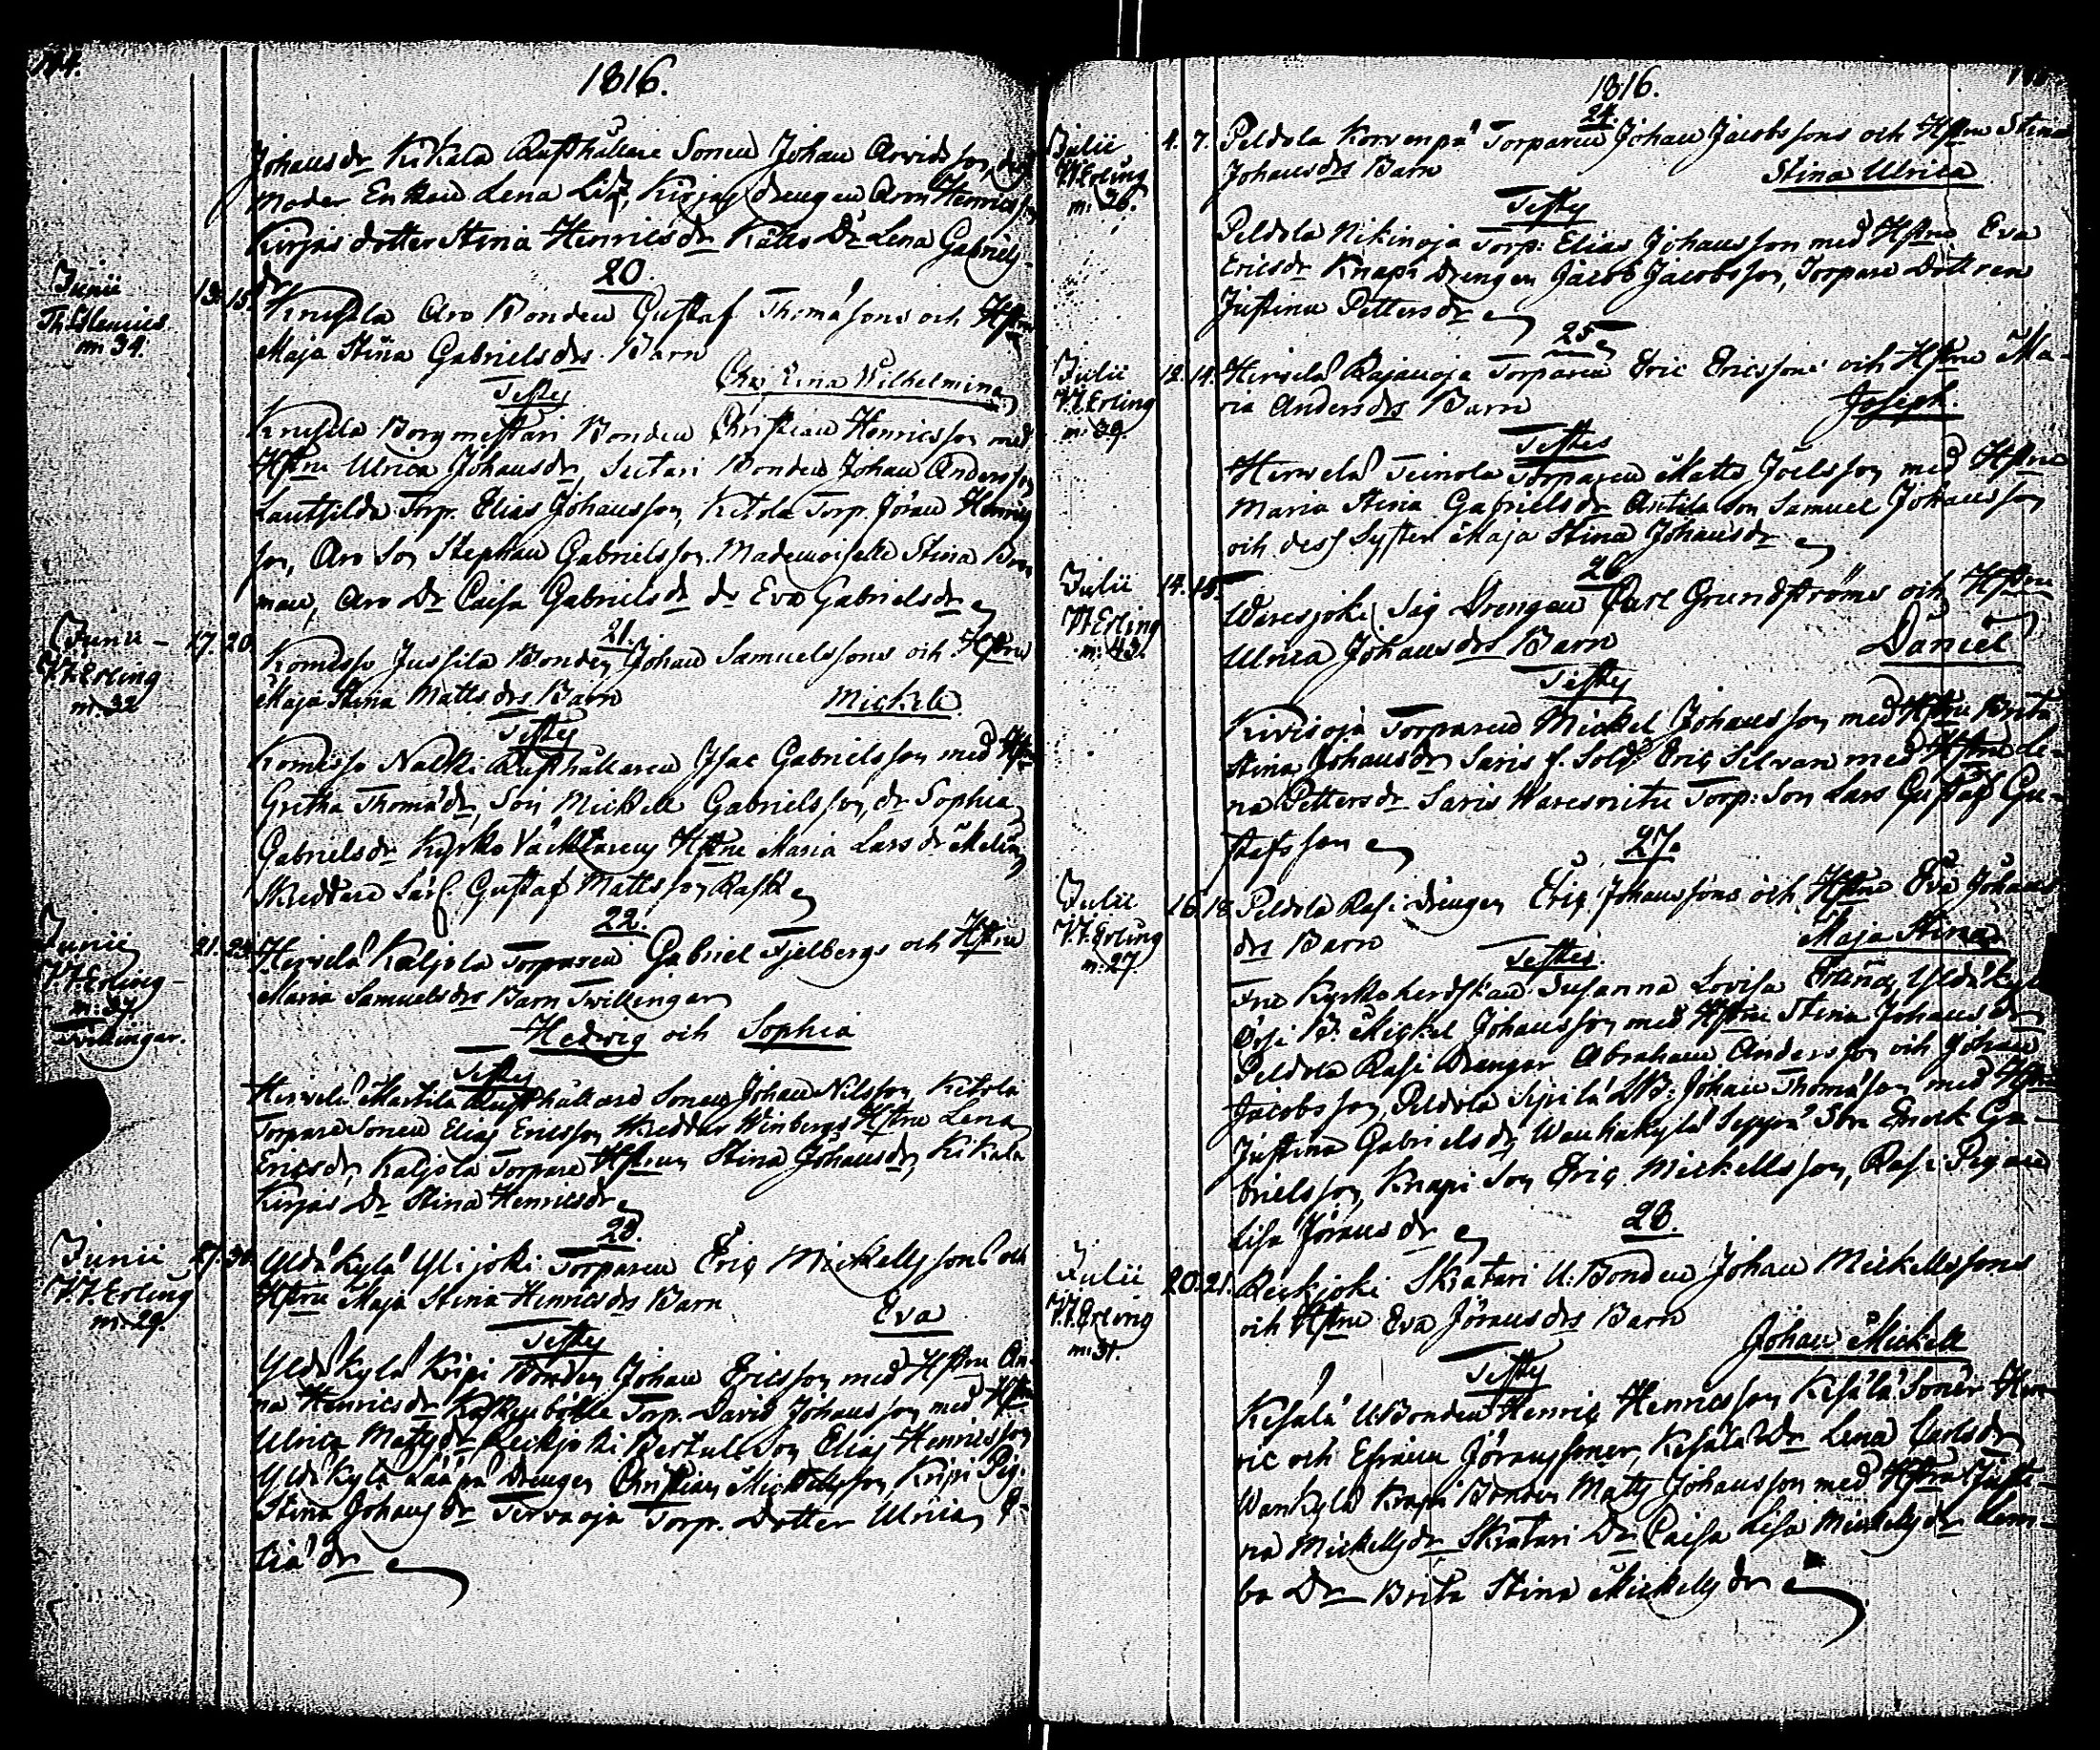 1816.
Johansdr Kikala Rusthållare Sonen Johan Arvidsson, dess
Moder Enkan Lena Lis, Kirjas drengen Aron Henricsson
Kirjas dotter Stina Henricsdr Lena Gabriels
dr
20.
Junii 13. 15. Krusila Aro Bonden Gustaf Thomæsons och Hstru
m 34. Maja Stina Gabrielsdrs Barn
Testes Christina Wilhelmina
Krusila Borgmestari Bonden Christian Henricsson med
Hstru Ulrica Johansdr, Suttari Bonden Johan Andersson
Torp. Elias Johansson, Kitola Torp. Jöran Henrics
son, Aro Son Stephan Gabrielsson. Mademoiselle Stina
man, Aro Dr Caisa Gabrielsdr dr Eva Gabrielsdr
21.
Junii 17. 20. Komisso Jussila Bonden Johan Samuelssons och Hstru
V.V. Erling Maja Stina Mattsdrs Barn Mickell
m. 32
Testes
Komisso Nalkki Rusthållaren Isac Gabrielsson med Hstru
Gretha Thomædr, Son Mickell Gabrielsson, dr Sophia
Gabrielsdr Kyrko Väcktarens Hstru Maria Larsdr
Skreddare Lärl. Gustaf Mattsson Rask
22.
Junii 21. 23. Hirvelä Kaljola Torparen Gabriel Fjelbergs och Hstru
V.V. Erling Maria Samuelsdrs Barn Twillingar
m. 37.
Twillingar. Hedwig och Sophia
Testes
Hirvelä Marttila Rusthållare Sonen Johan Nilsson, Kitola
Torpare Sonen Elias Ericsson Skreddar Winbergs Hstru Lena
Ericsdr, Kaljola Torpare Hstrun Stina Johansdr, Kikala
Kirjas Dr Stina Henricsdr
23.
Junii 27. 30. Yldäkylä Ylijoki Torparen Eric Mickellssons och
V.V. Erling Hstru Maja Stina Henricsdrs Barn Eva
m. 29.
Testes
Yldäkylä Kripi Bonden Johan Ericsson med Hstru An-
na Henricsdr Torp. David Johansson med Hstru
Ulrica Mattsdr Reckjoki Bertull Son Elias Henricsson
Yldäkylä drengen Christian Mickellsson, Kripi Pig.
Stina Johansdr Tervaoja Torp. Dotter Ulrica
dr
1816.
24.
Julii 4. 7. Peldola Korvenpä Torparen Johan Jacobssons och Hstru Stina
V.V. Erling Johansdrs Barn Stina Ulrica
m. 26.
Testes
Peldola Nikinoja Torp: Elias Johansson med Hstru Eva
Ericsdr Knapi Drengen Jacob Jacobsson, Torpare Dottren
Justina Pettersdr
25
Julii 12. 14. Hirvelä Rajanoja Torparen Eric Ericssons och Hstru Ma-
V.V. Erling ria Andersdrs Barn Joseph.
m. 39.
Testes
Hirvelä Teinola Torparen Matts Joelsson med Hstru
Maria Stina Gabrielsdr Antila Son Samuel Johansson
och dess Syster Maja Stina Johansdr
26
Julii 14. 15. Waresjoki Såg Drengen Carl Grundströms och Hstru
V.V. Erling Ulrica Johansdrs Barn Daniel
m. 43.
Testes
Kivisoja Torparen Mickel Johansson med Hstru Brita
Stina Johansdr, Saris f. Sold: Eric Silvan med Hstru Le-
na Pettersdr Saris Torp: Son Lars Gustaf Gu-
stafsson
27.
Julii 16. 18. Peldola Rasi drengen Eric Johanssons och Hstru Eva Johans
V.V. Erling drs Barn Maja Stina
m. 27.
Testes.
Fru Kyrkoherdskan Susanna Lovisa
B. Mickel Johansson med Hstru Stina Johansdr
Peldola Rasi Drengar Abraham Andersson och Johan
Jacobsson, Peldola Sipilä Johan Thomæson med Hstru
Justina Gabrielsdr, Wanhakylä Seppä Son Enock Ga-
brielsson, Knapi Son Eric Mickellsson, Rasi Pigan
Lisa Jöransdr
28.
Julii 20. 21. Reckjoki Skratari U: Bonden Johan Mickellssons
V.V. Erling och Hstru Eva Jöransdrs Barn Johan Mickell
m. 31.
Testes
Kesälä U: Bonden Henric Henricsson Kesälä Söner Hen-
ric och Efraim Jöranssöner, Kesälä Dr Lena Carlsdr
Wankylä Knapi Bonden Matts Johansson med Hstru Justi-
na Mickellsdr Skratari Dr Caisa Lisa Mickellsdr Lem-
bo Dr Brita Stina Mickellsdr